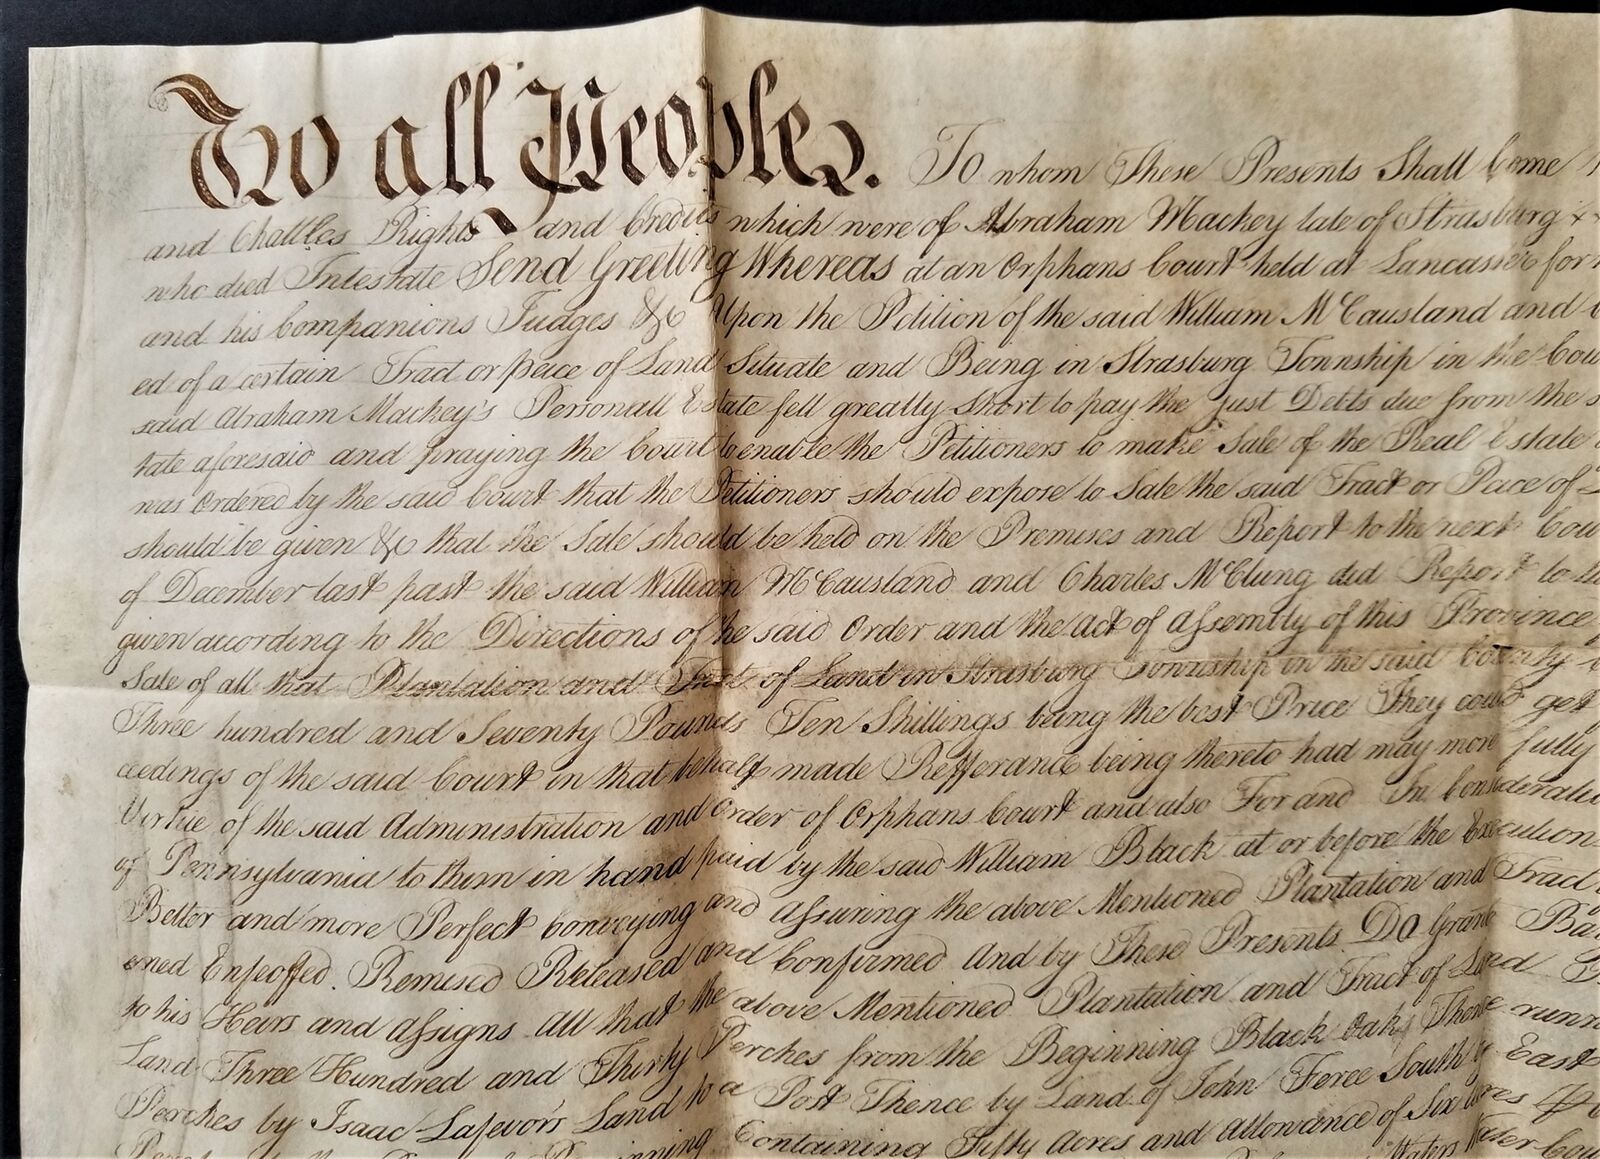 To all People. To whom These Presents Shall Come
and Chattles Rights and Credits which were of Abraham Mackey late of Strasburg
who died Intestate Send Greeting Whereas at an Orphans Court held at Lancaster for
and his Companions Judges &c Upon the Petition of the said William McCausland and
ed of a certain Tract or peice of Land Situate and Being in Strasburg Township in the Cou
said Abraham Mackey's Personall Estate fell greatly Short to pay the just Debts due from the
tate aforesaid and praying the Court to enable the Petitioners to make Sale of the Real Estate
was Ordered by the said Court that the Petitioners should expose to Sale the said Tract or Peace of
should be given &c that the Sale should be held on the Premises and Report to the next Cou
of December last past the said William McCausland and Charles McClung did Report to
given according to the Directions of the said Order and the Act of Assembly of this Province
Sale of all that Plantation and Tract of Land in Strasburg Township in the said County
Three hundred and Seventy Pounds Ten Shillings being the best Price They could get
ceedings of the said Court in that behalf made Refferance being thereto had may more fully
Virtue of the said Administration and Order of Orphans Court and also For and In Consideratio
of Pennsylvania to them in hand paid by the said William Black at or before the Execution
Better and more Perfect Conveying and Assuring the above Mentioned Plantation and Tract
ened Enfeoffed Remised Released and Confirmed And by These Presents Do Grant Ba
to his Heirs and Assigns All that the above Mentioned Plantation and Tract of Land
Land Three Hundred and Thirty Perches from the Beginning Black Oak Thence runn
Perches by Isaac Lafevor's Land to a Post Thence by Land of John Feree South East
Containing Fifty Acres and Allowance of Six Acres